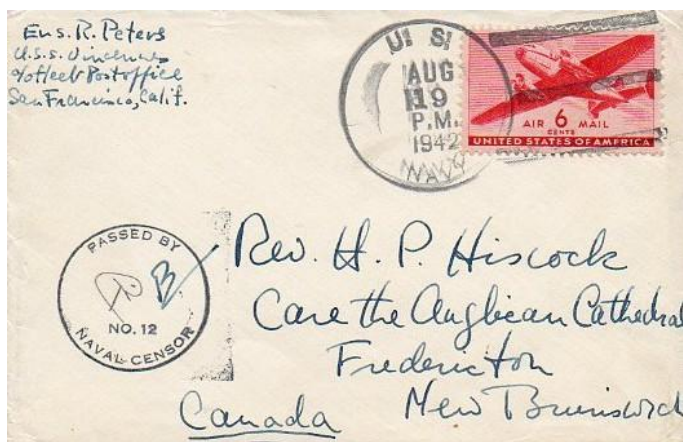 Ens. R. Peters
U.S.S. Vincennes
c/o Fleet Postoffice
San Francisco, Calif.
U. S.
AUG
19
P.M.
1942
NAVY
AIR 6 MAIL
CENTS
UNITED STATES OF AMERICA
PASSED BY
NO. 12
NAVAL CENSOR
Rev. H. P. Hiscock
Care the Anglican Cathedral
Fredericton
New Brunswick
Canada